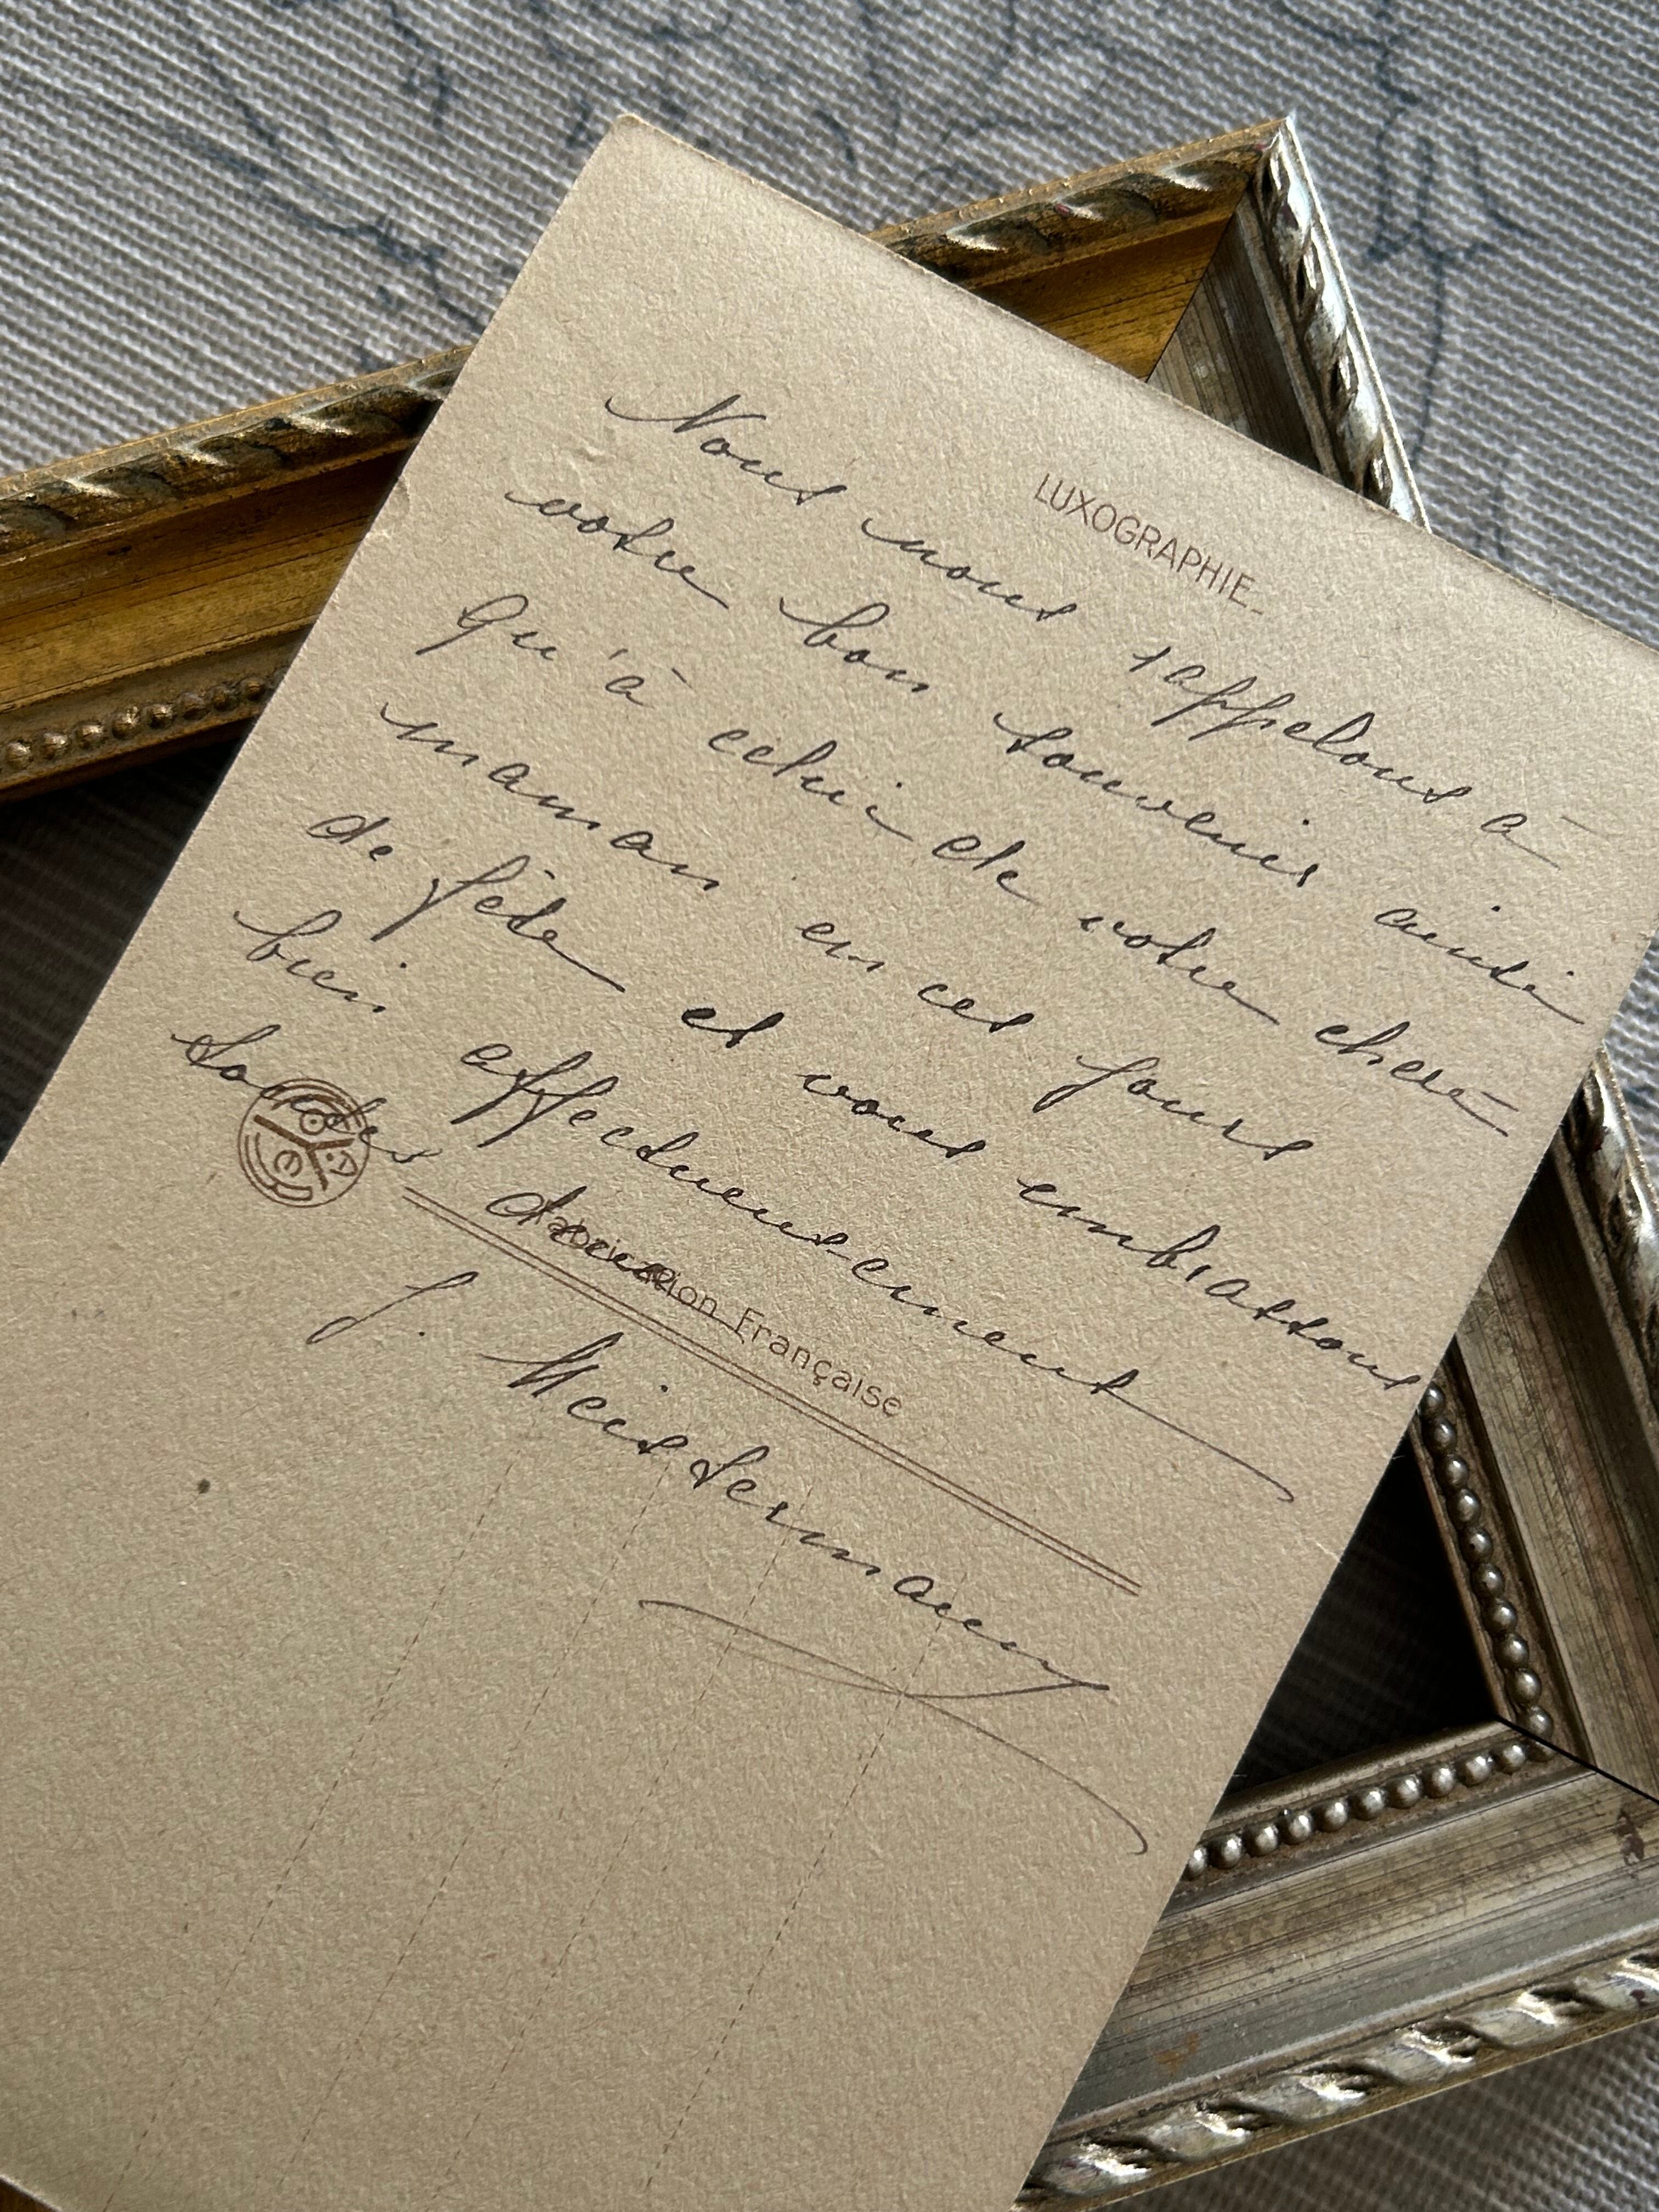 LUXOGRAPHIE_
Nous nous rappelons à
votre bon souvenir ainsi
Qu'à celui de votre chere
maman en ces jours
de fête et vous embrassons
bien affectueusement
toutes deux
Fabrication Française
J. Meistermann